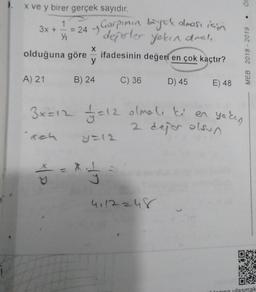 x ve y birer gerçek sayıdır.
3x + 1/y = 24 → Çarpımın büyük olması için
değerler yakın olmalı
olduğuna göre x/y ifadesinin değeri en çok kaçtır?
A) 21 B) 24 C) 36 D) 45 E) 48
MEB 2018 - 2019
3x=12 1/y=12 olmalı ki en yakın
2 değer olsun
y=12
x/y = x . 1/y =
4.12=48